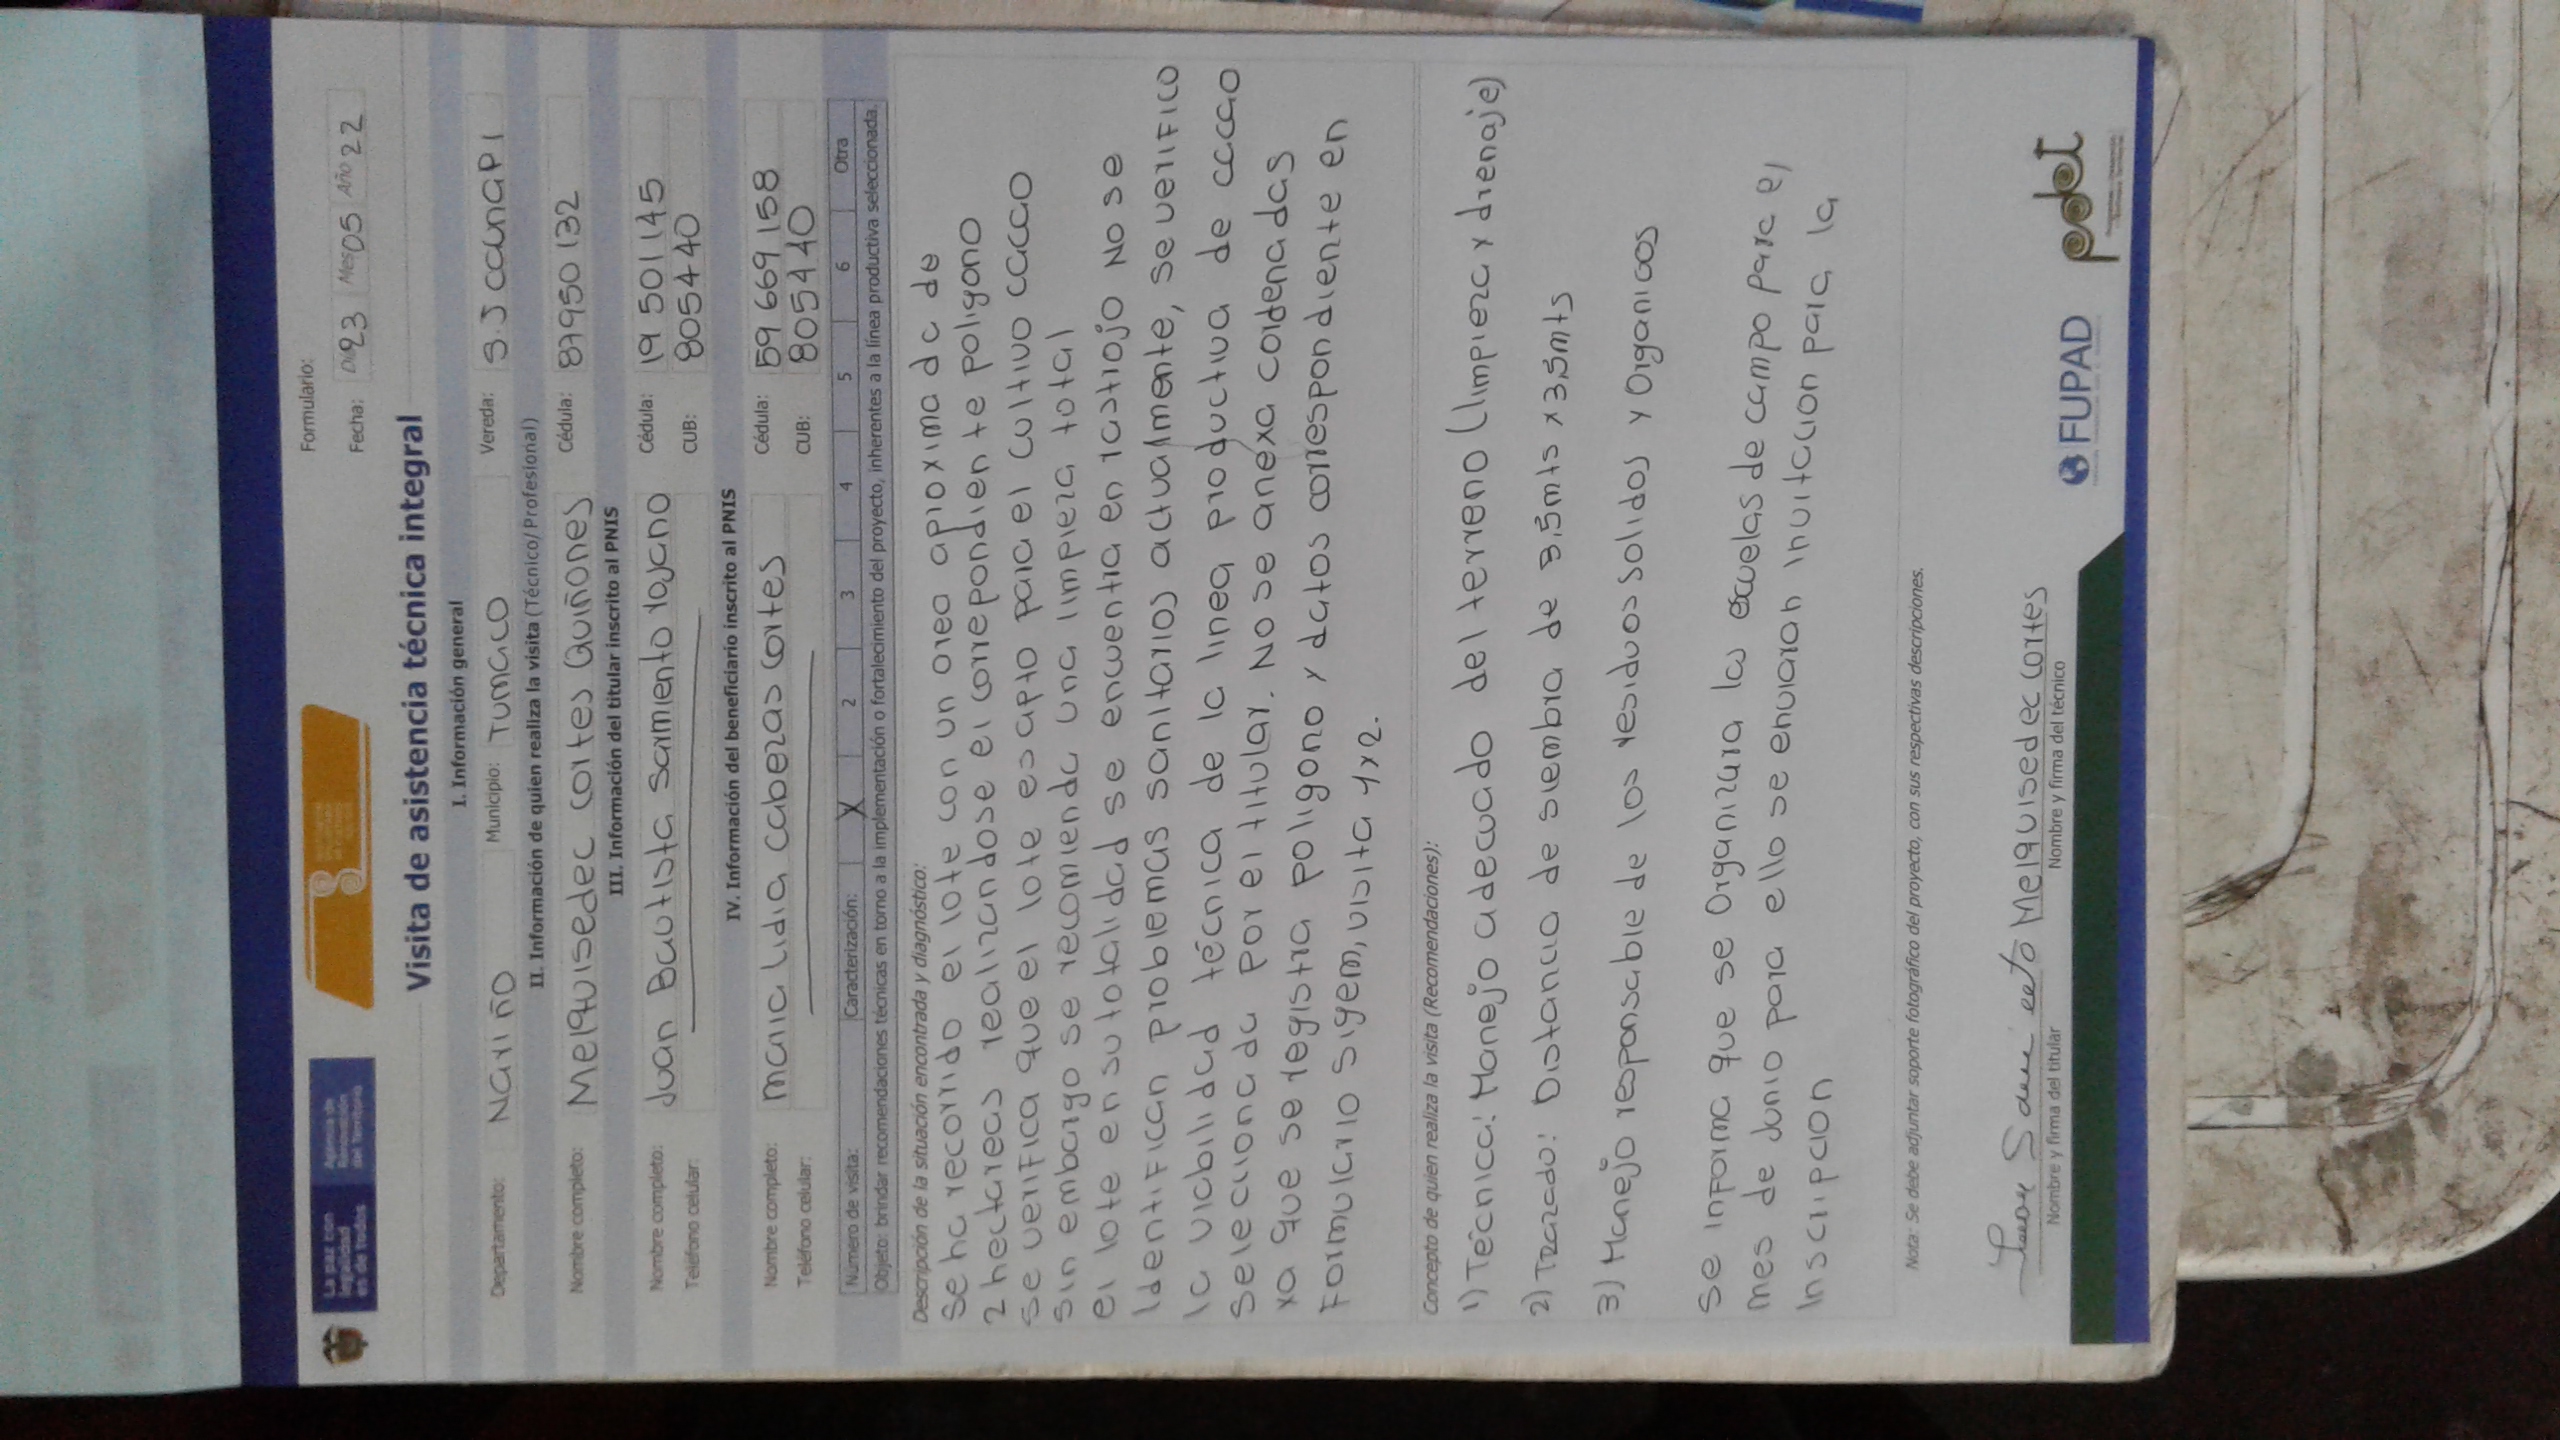 La paz con
legalidad
es de todos
Agencia de
Renovación
del Territorio
Formulario:
Fecha: Día 23 Mes 05 Año 22
Visita de asistencia técnica integral
I. Información general
Departamento: Nariño Municipio: Tumaco Vereda: S.J caunapi
II. Información de quien realiza la visita (Técnico/ Profesional)
Nombre completo: Melquisedec cortes Quiñones Cédula: 87950132
III. Información del titular inscrito al PNIS
Nombre completo: Juan Bautista Sarmiento rojano Cédula: 19 501 145
Teléfono celular: CUB: 805440
IV. Información del beneficiario inscrito al PNIS
Nombre completo: maria Lidia cabezas cortes Cédula: 59 669 158
Teléfono celular: CUB: 805440
Número de visita: Caracterización: X 2 3 4 5 6 Otra
Objeto: brindar recomendaciones técnicas en torno a la implementación o fortalecimiento del proyecto, inherentes a la línea productiva seleccionada.
Descripción de la situación encontrada y diagnóstico:
se ha recorrido el lote con un area aproximada de
2 hectareas realizandose el correpondiente poligono
se verifica que el lote es apto para el cultivo cacao
sin embargo se recomienda una limpieza total
el lote en su totalidad se encuentra en rastrojo No se
Identifican problemas sanitarios actualmente, se verifico
la viabilidad técnica de la linea productiva de cacao
seleccionada por el titular. No se anexa cordenadas
ya que se registra poligono y datos correspondiente en
Formulario sigem, visita 1x2.
Concepto de quien realiza la visita (Recomendaciones):
1) Técnica: Manejo adecuado del terreno (limpieza y drenaje)
2) Trazado: Distancia de siembra de 3,5mts x 3,5mts
3) Manejo responsable de los residuos solidos y Organicos
Se informa que se Organizara la escuelas de campo para el
mes de Junio para ello se enviaran Invitacion para la
Inscripcion
Nota: Se debe adjuntar soporte fotográfico del proyecto, con sus respectivas descripciones.
Melquisedec cortes
Nombre y firma del titular Nombre y firma del técnico
FUPAD
pdet